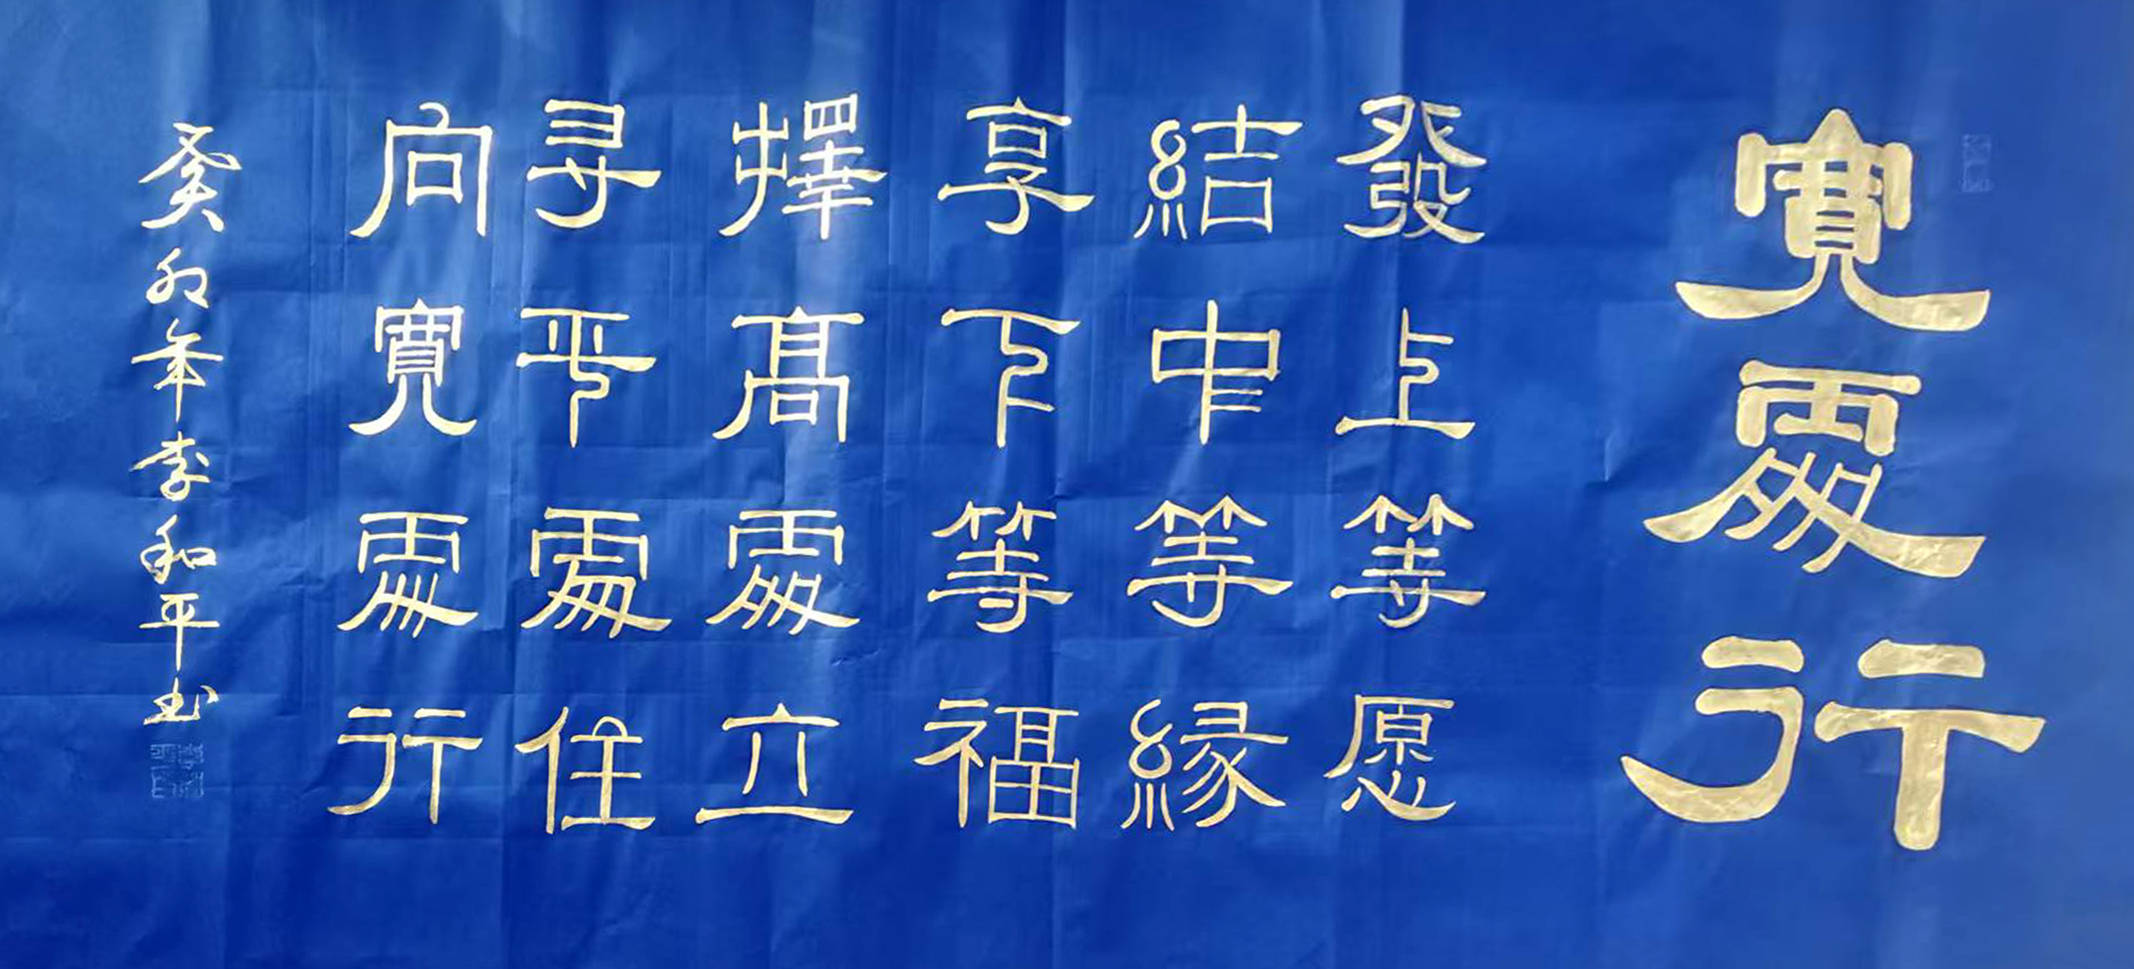 寬處行
發上等愿
結中等緣
享下等福
擇高處立
尋平處住
向寬處行
癸卯年李和平书